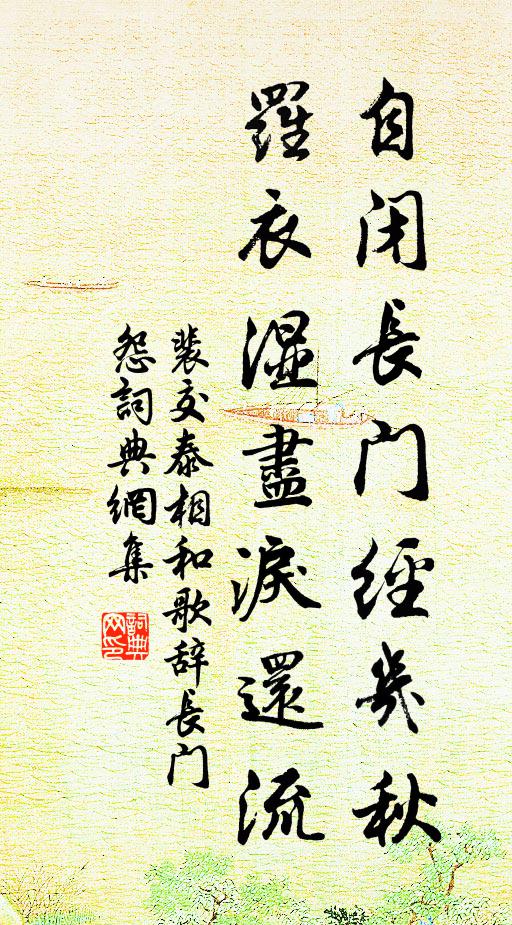 自闭長门經幾秋
羅衣濕盡淚還流
裴交泰相和歌辞長门
怨詞典網集
詞典
网印